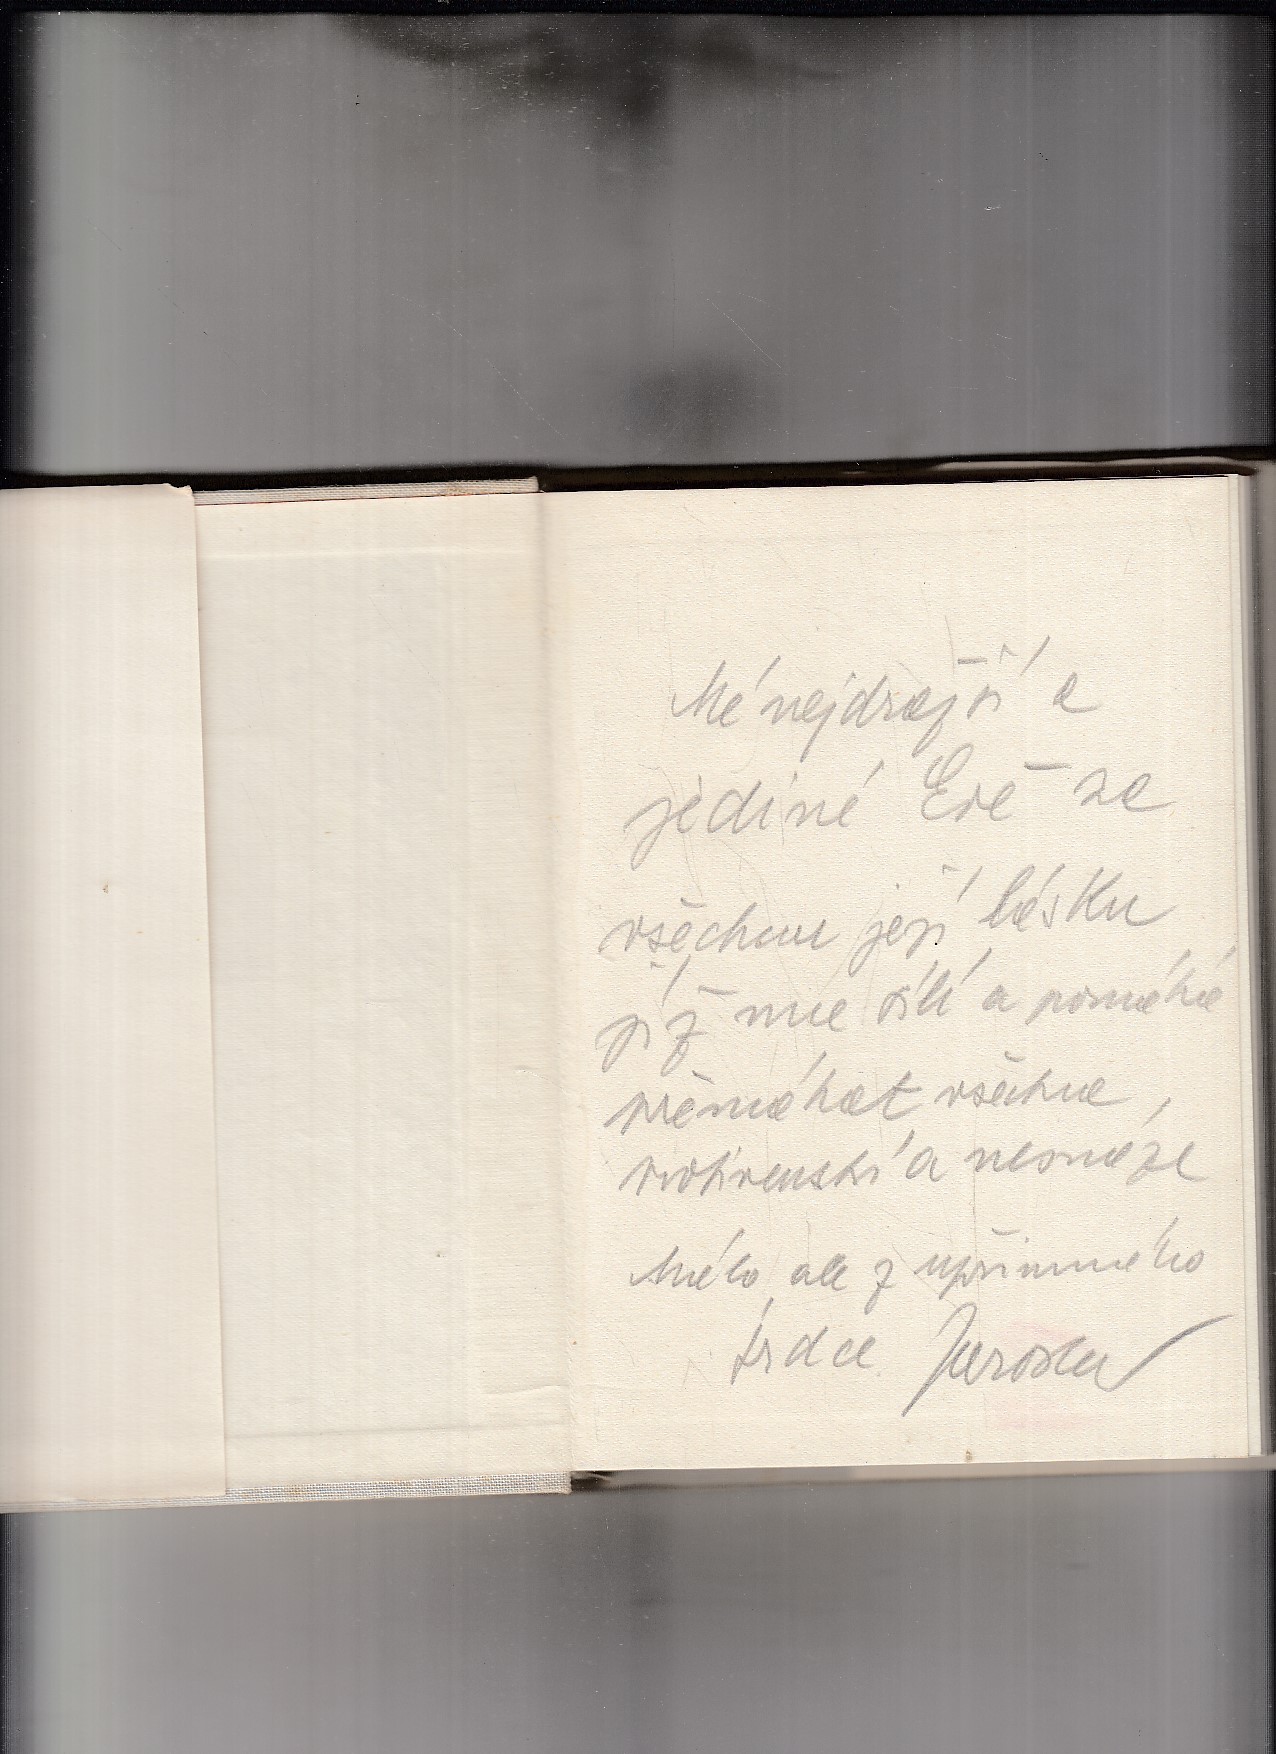 Mé nejdražší a
jediné Evě za
všechnu její lásku
jíž mne sílí a pomáhá
přemáhat všechna
protivenství a nesnáze
Málo, ale z upřímného
srdce Jaroslav